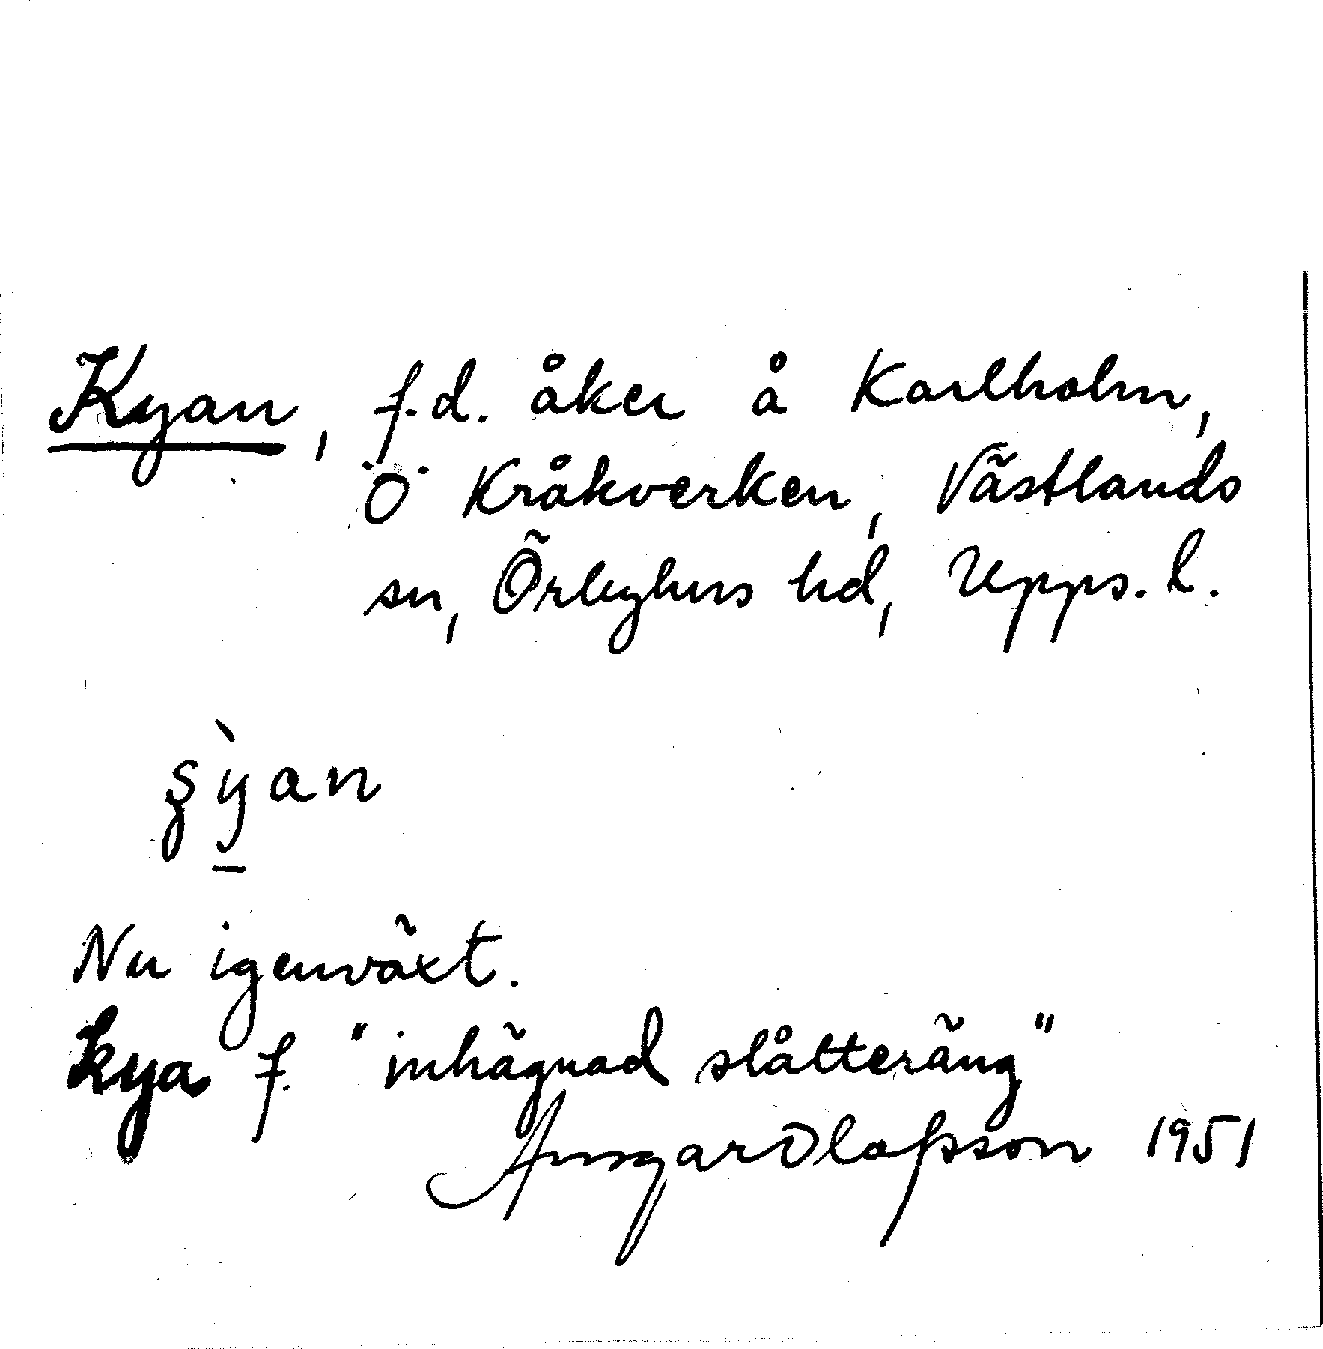 Kyan, f.d. åker å Karlholm,
Ö Kråkverken, Västlands
sn, Örbyhus hd, Upps. l.
ʂỳan
Nu igenväxt.
kya f. "inhägnad slåtteräng"
Ansgar Olafsson 1951